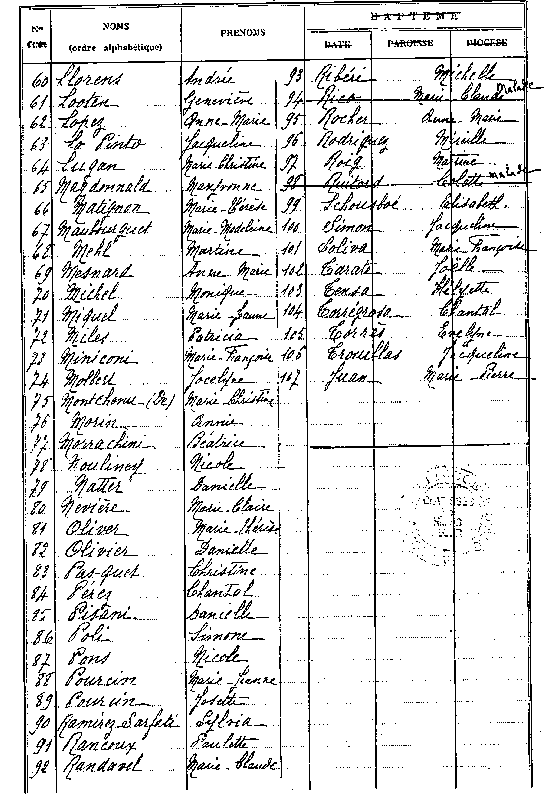 Nos
d'ordre
NOMS
(ordre alphabétique)
PRENOMS
BAPTEME
DATE PAROISSE DIOCESE
60 Llorens Andrée 93 Ribéri Michelle
61 Looten Geneviève 94 Rico Marie Claude malade
62 Lopez Anne-Marie 95 Rocher Anne Marie
63 Lo Pinto Jacqueline 96 Rodriguez Mireille
64 Lugan Marie Christine 97 Roig Martine
65 Magdonnald Maryvonne 98 Ruitord Colette malade
66 Matignon Marie-Thérèse 99 Schousboé Elisabeth
67 Maubourguet Marie-Madeleine 100 Simon Jacqueline
68 Mehl Martine 101 Soliva Marie Françoise
69 Mesnard Anne Marie 102 Tarate Joëlle
70 Michel Monique 103 Tensa
71 Miquel Marie-Jeanne 104 Torregrosa Chantal
72 Miles Patricia 105 Torrès Evelyne
73 Miniconi Marie-Françoise 106 Trouillas Jacqueline
74 Molbert Jocelyne 107 Juan Marie-Pierre
75 Montchenu (De) Marie Christine
76 Morin Annie
77 Morrachini Béatrice
78 Moulinoy Nicole
79 Natter Danielle
80 Nevière Marie-Claire
81 Oliver Marie-Thérèse
82 Olivier Danielle
83 Pasquet Christine
84 Pérez Chantal
85 Pisani Danielle
86 Poli Simone
87 Pons Nicole
88 Pourcin Marie-Jeanne
89 Pourcin Josette
90 Ramirez-Sarfati Sylvia
91 Rancoux Paulette
92 Randavel Marie-Claude